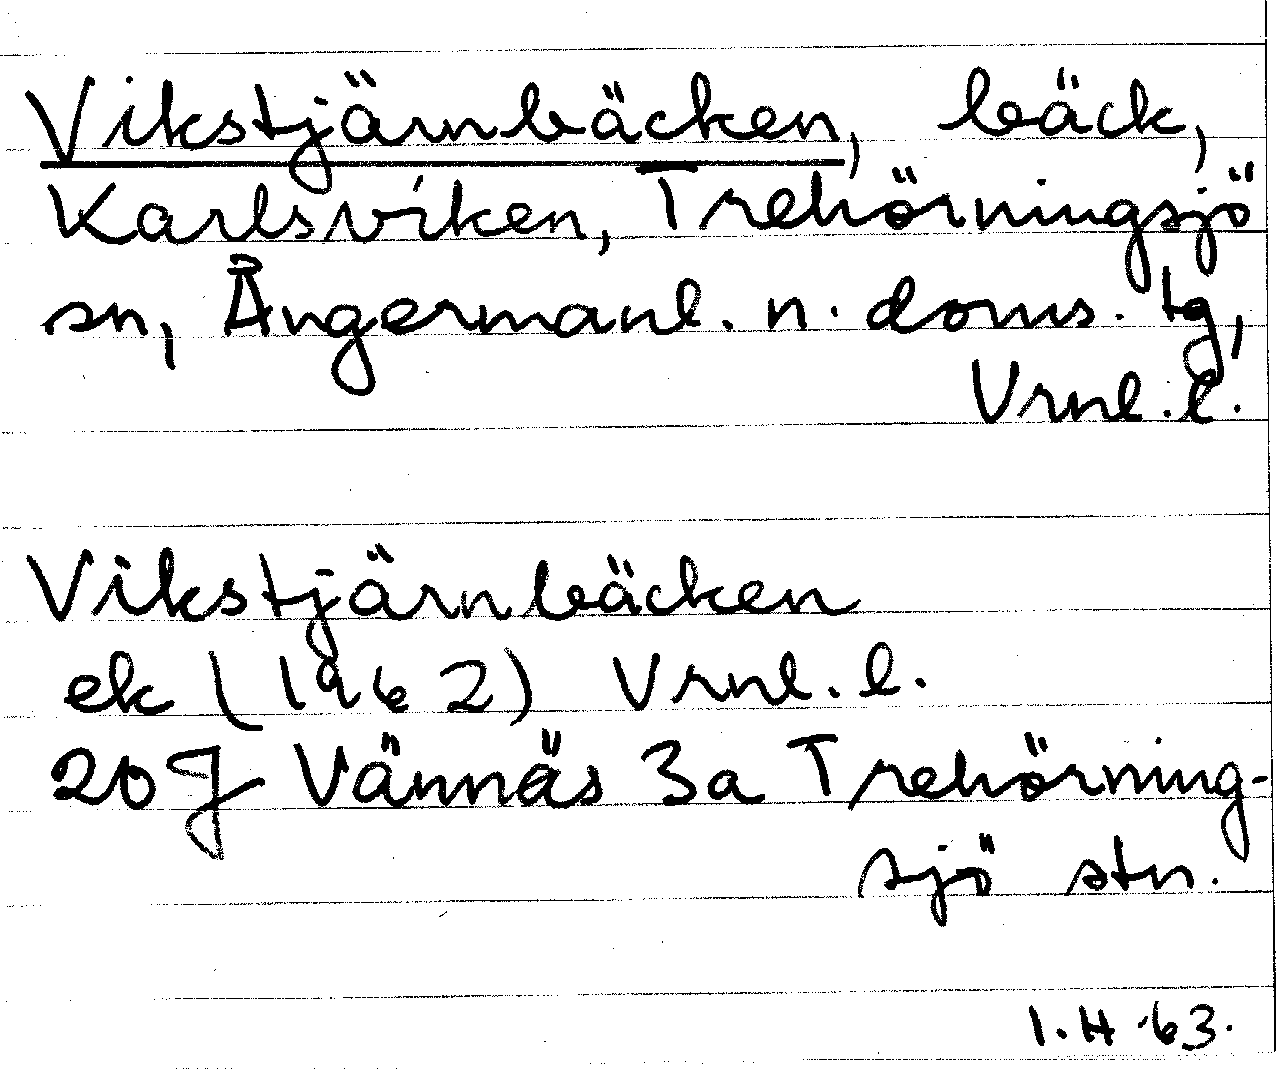 Vikstjärnbäcken, bäck,
Karlsviken, Trehörningsjö
sn, Ångermanl. n. doms. tg,
Vrnl. l.
Vikstjärnbäcken
ek (1962) Vrnl. l.
20J Vännäs 3a Trehörning-
sjö stn.
I. H. 63.